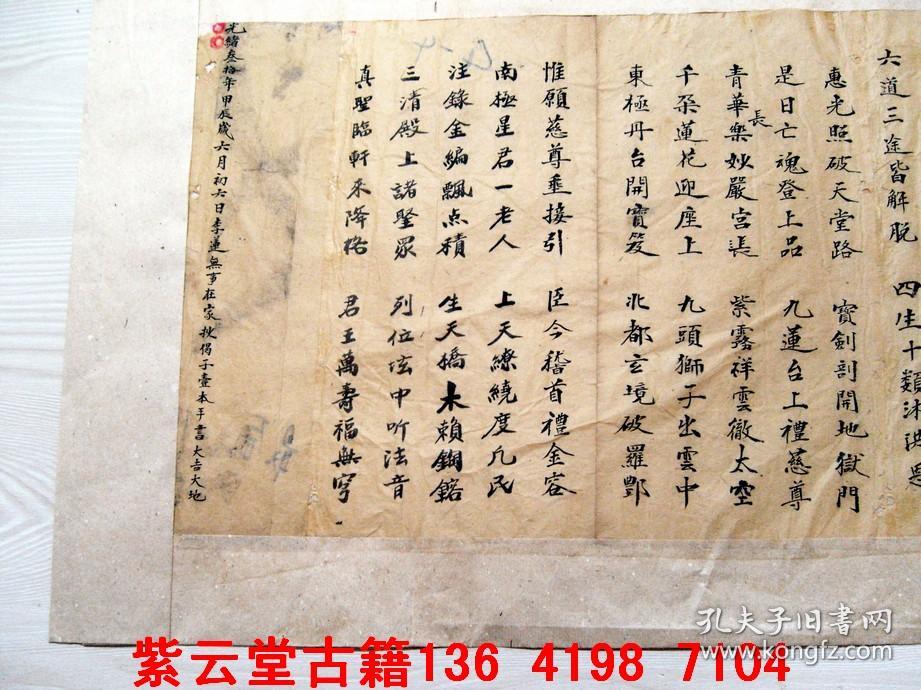 六道三途皆解脱 四生十類沐洪恩
惠光照破天堂路 寶劍剖開地獄門
是日亡魂登上品 九蓮台上禮慈尊
青華樂妙嚴宮 紫霧祥雲徹太空
長
千朶蓮花迎座上 九頭獅子出雲中
東極丹台開寶笈 北都玄境破羅酆
惟願慈尊垂接引 臣今稽首禮金容
南極星君一老人 上天繚繞度凡民
注錄金編飄点積 生天橋木賴銅鎔
三清殿上諸聖眾 列位坛中听法音
真聖臨軒来降格 君王萬壽福無窮
光緒叁拾年甲辰歲六月初六日李蓮無事在家抄偈子壹本手書大吉大地
紫云堂古籍136 4198 7104
孔夫子旧书网
www.kongfz.com